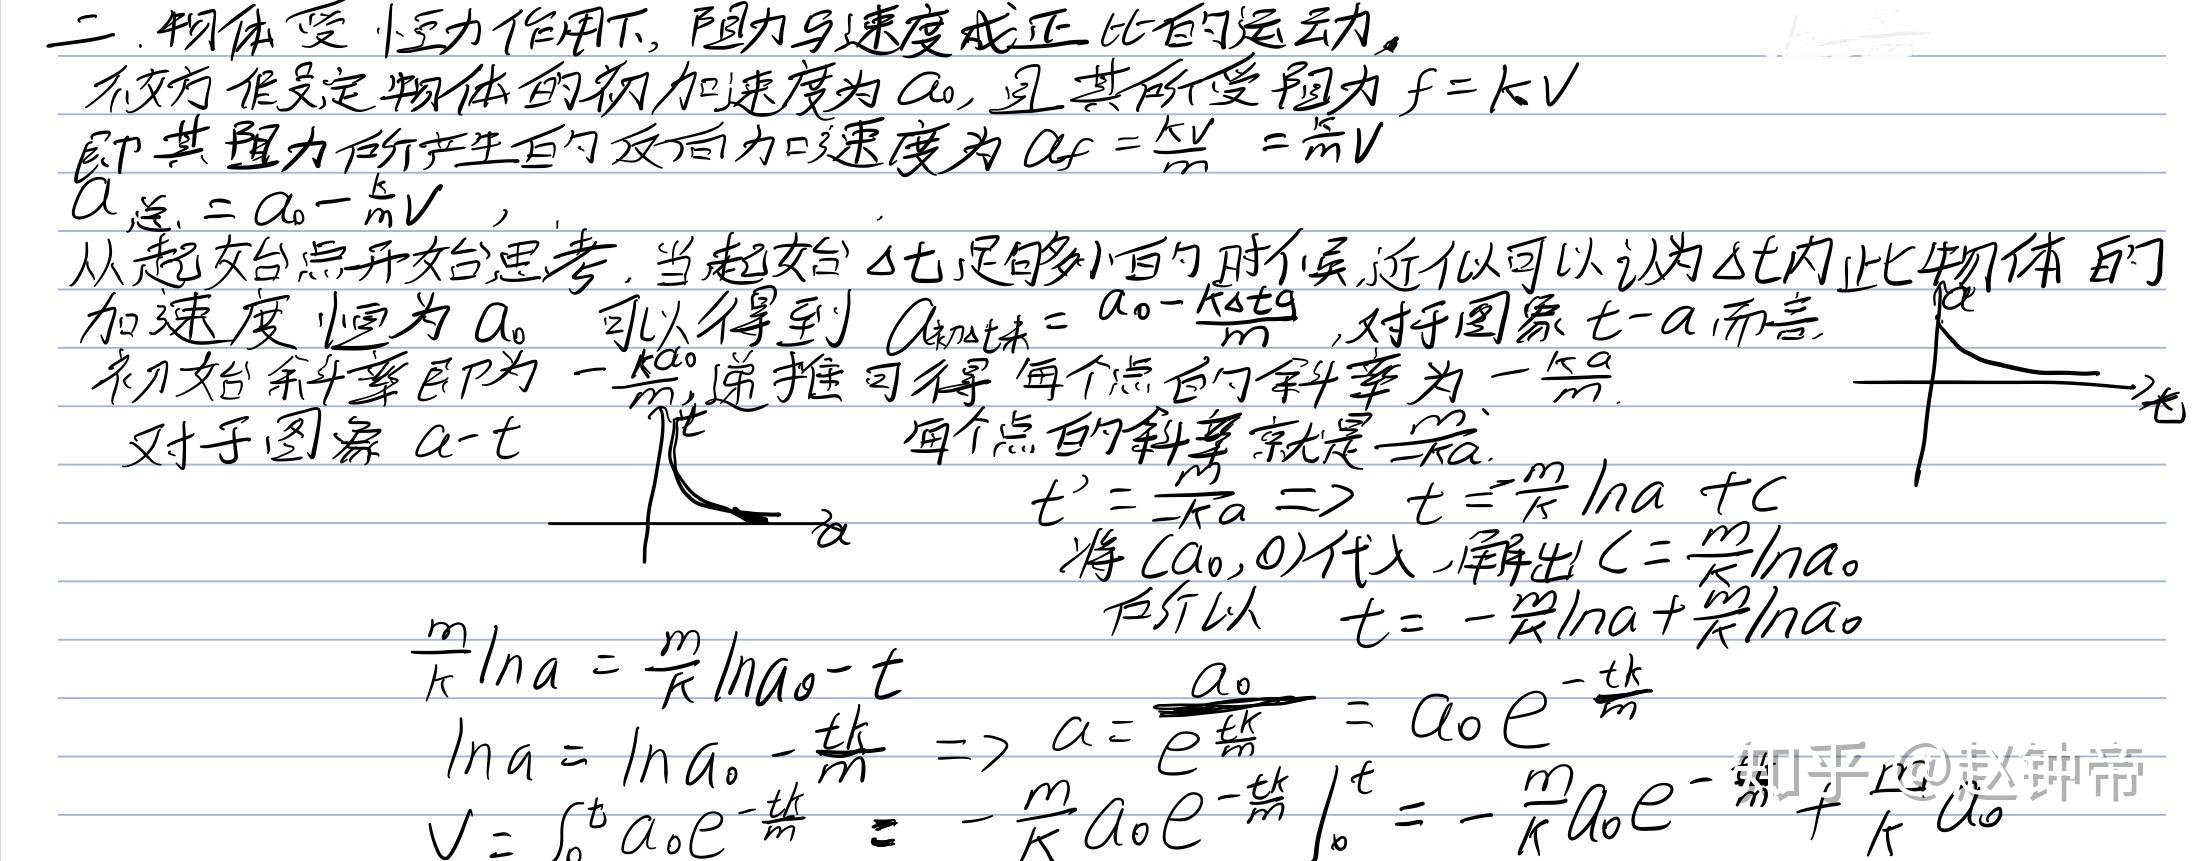 二.物体受恒力作用下,阻力与速度成正比的运动。
不妨假设定物体的初加速度为a₀,且其所受阻力 f=kv
即其阻力所产生的反向加速度为 a_f = kv/m = k/m v
a总 = a₀ - k/m v ,
从起始点开始思考.当起始Δt足够小的时候,近似可以认为Δt内此物体的
加速度恒为a₀ 可以得到 a初Δt末 = a₀ - kΔta/m ,对于图象 t-a 而言
a
初始斜率即为 -ka₀/m,递推可得每个点的斜率为 -ka/m.
t
对于图象 a-t
t
a
每个点的斜率就是 m/-ka.
t' = m/-ka => t = -m/k lna + c
将(a₀,0)代入,解出 C = m/k lna₀
所以 t = -m/k lna + m/k lna₀
m/k lna = m/k lna₀ - t
lna = lna₀ - tk/m => a = a₀/e^(tk/m) = a₀e^(-tk/m)
v = ∫₀ᵗ a₀e^(-tk/m) = -m/k a₀e^(-tk/m) |₀ᵗ = -m/k a₀e^(-tk/m) + m/k a₀
知乎 @赵钟帝